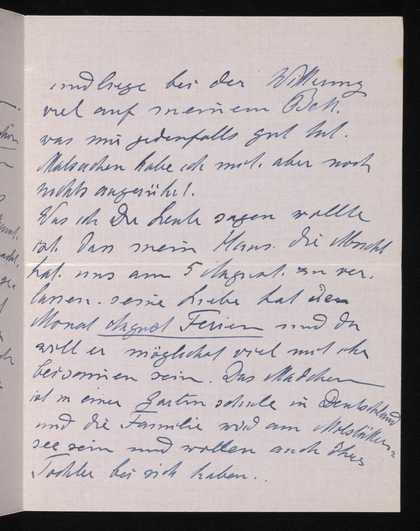 und liege bei der Witterung
viel auf meinem Bett.
was mir jedenfalls gut tut.
Malsachen habe ich mit. aber noch
nichts angerührt.
Was ich Dir heute sagen wollte
ist dass mein Hans. die Absicht
hat. uns am 5 August. zu ver.
lassen. seine Liebe hat dem
Monat August Ferien und da
will er möglichst viel mit ihr
beisammen sein. Das Mädchen
ist in einer Gartenschule in Deutschland
und die Familie wird am
see sein und wollen auch ihre
Tochter bei sich haben..